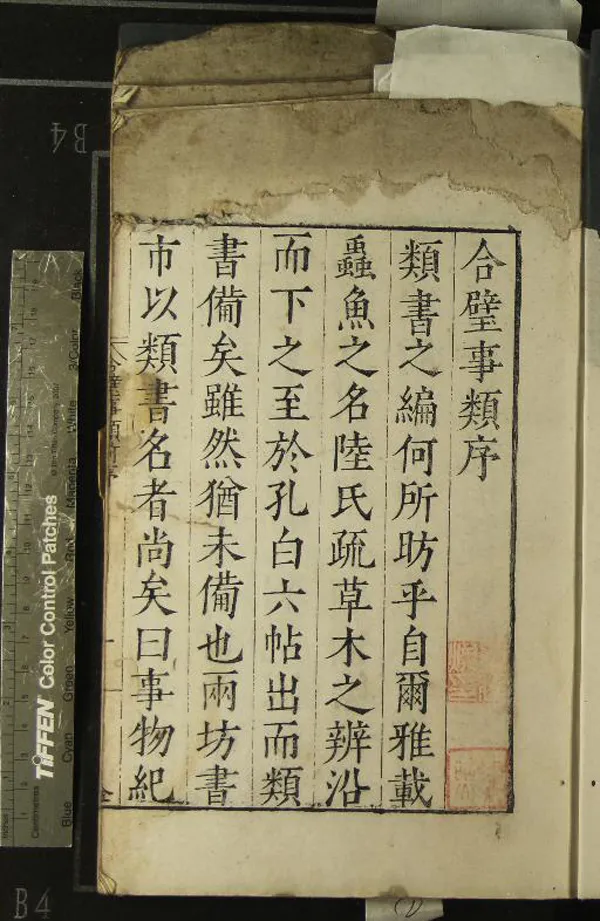 合璧事類序
類書之編何所昉乎自爾雅載
蟲魚之名陸氏疏草木之辨沿
而下之至於孔白六帖出而類
書備矣雖然猶未備也兩坊書
市以類書名者尚矣曰事物紀
B4
B4
TIFFEN Color Control Patches
Blue Cyan Green Yellow Red Magenta White 3/Color Black
Centimetres
Inches